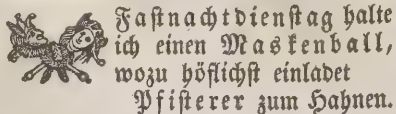 Faſtnachtdienſtag halte
ich einen Maskenball,
wozu höflichſt einladet
Pfiſterer zum Hahnen.